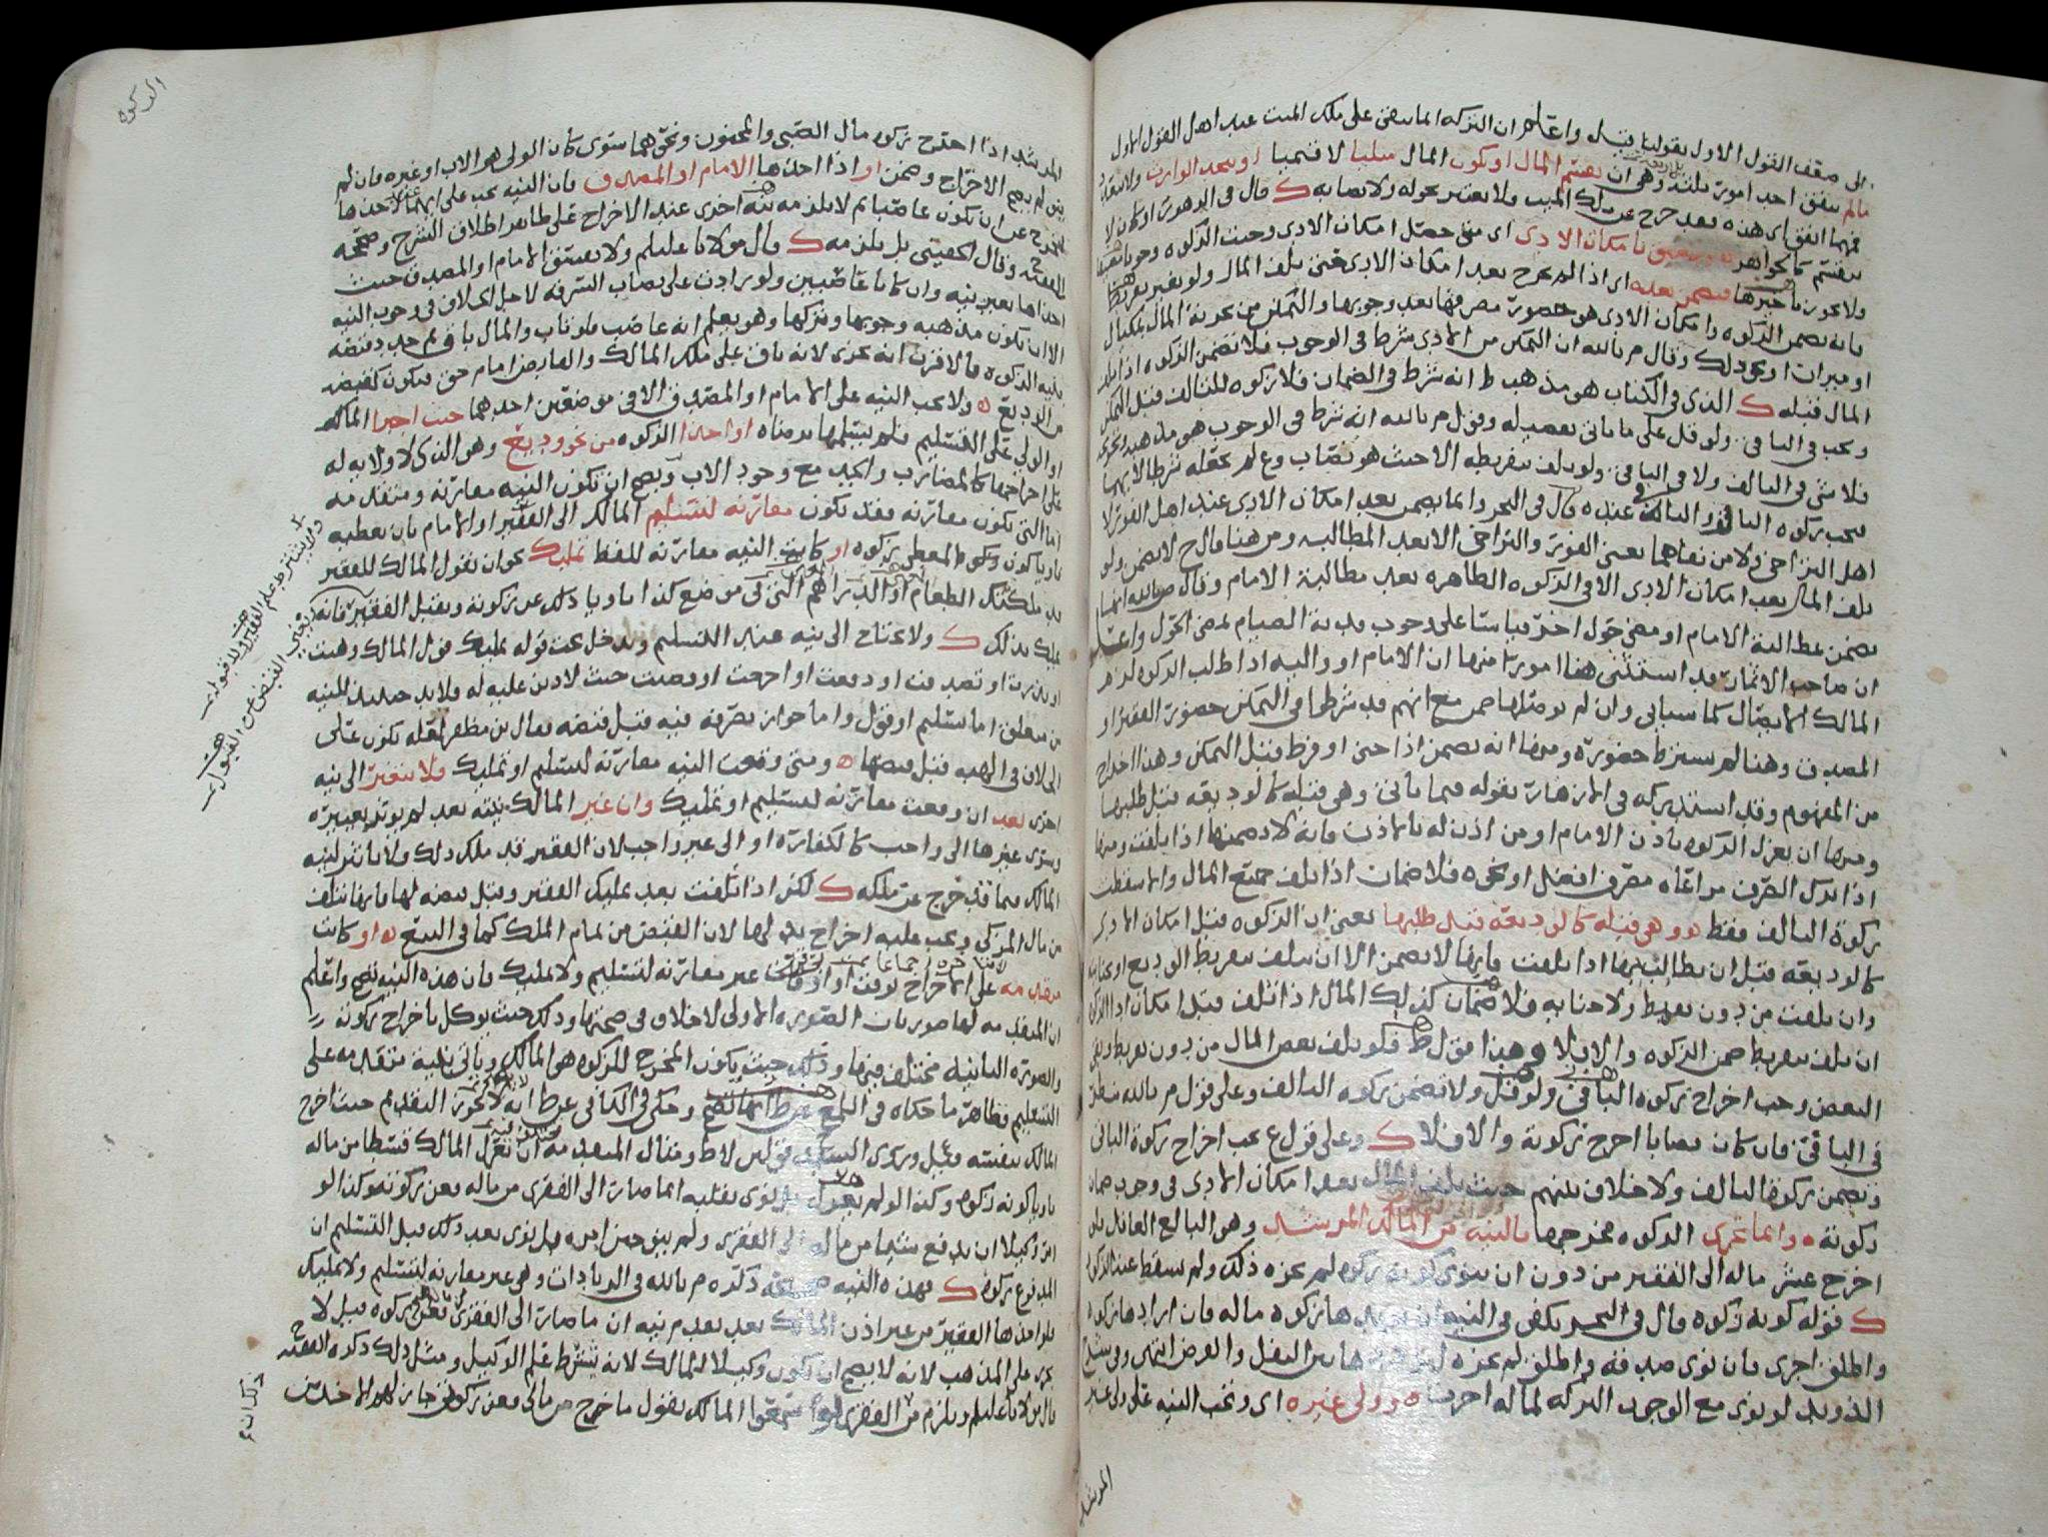 الى سقف القول الاول بقولنا قيل واعلم ان التركه انما تبقى على ملك الميت عند اهل القول الاول
مالم يتفق احد امور ثلثه وهي ان يقتسم المال او يكون المال مثليا لا قيميا او يتحد الوارث
فمهما اتفق اي هذه فقد خرج عن ملك الميت ولا يعتبر بحوله ولا نصابه ك قال في
ينقسم كالجواهر وتتضيق بامكان الادى اى متى حصل امكان الادى وجبت الزكوه وجوبا
ولا يجوز تاخيرها فتضمن بعده اى اذا لم يخرج بعد امكان الادى حتى تلف المال ولو بغير تفريط
فانه يضمن الزكوه وامكان الادى هو حضور مصرفها بعد وجوبها والتمكن من تجزئة المال بمكيال
او ميزان او نحو ذلك وقال م بالله ان التمكن من الادى شرط في الوجوب فلا تضمن الزكوه اذا تلف
المال قبله ك الذي في الكتاب هو مذهب ط انه شرط في الضمان فلا زكوه للتالف قبل التمكن
ويجب في الباقي ولو قل على ما ياتي تفصيله وقول م بالله انه شرط في الوجوب هو مذهب
فلا شي في التالف ولا في الباقي ولو تلف بتفريطه الا حيث هو نصاب وع لم يجعله شرطا لايهما
فتجب زكوه الباقي والتالف عنده قال في البحر وانما يضمن بعد امكان الادى عند اهل الفور لا
اهل التراخي ولا من نفاهما يعني الفور والتراخي الا بعد المطالبه ومن هنا قال ح لا يضمن ولو
تلف المال بعد امكان الادى الا في الزكوه الظاهره بعد مطالبة الامام وقال
يضمن بمطالبة الامام او مضي حول اخر قياسا على وجوب فدية الصيام بمضي الحول واعلم
ان صاحب الاثمار قد استثنى هنا امورا منها ان الامام او واليه اذا طلب الزكوه لزم
المالك الايصال كما سياتي وان لم يوصلها ضمن مع انهم قد شرطوا في التمكن حضور الفقير او
المصدق وهنا لم يشترط حضوره ومنها انه يضمن اذا جنى او فرط قبل التمكن وهذا اخذ
من المفهوم وقد استدركه في الازهار بقوله فيما ياتي وهي قبله كالوديعه قبل طلبها
ومنها ان يعزل الزكوه باذن الامام او من اذن له بالاذن فانه لا يضمنها اذا تلفت ومنها
اذا ترك الصرف مراعاه مصرف افضل او نحوه فلا ضمان اذا تلف جميع المال وانما سقطت
زكوة التالف فقط وهي قبله كالوديعه قبل طلبها يعني ان الزكوه قبل امكان الادى
كالوديعه قبل ان يطالب بها اذا تلفت فانها لا تضمن الا ان تتلف بتفريط الوديع او جنايته
وان تلفت من دون تفريط ولا جنايه فلا ضمان كذلك المال اذا تلف قبل امكان اداء الزكوه
ان تلف بتفريط ضمن الزكوه والا فلا وهذا قول ط فلو تلف بعض المال من دون تفريط وبقي
البعض وجب اخراج زكوه الباقي ولو قل ولا تضمن زكوه التالف وعلى قول م بالله ينظر
في الباقي فان كان نصابا اخرج زكوته والا فلا ك وعلى قول ع يجب اخراج زكوة الباقي
وتضمن زكوة التالف ولا خلاف بينهم حيث تلف المال بعد امكان الادى في وجوب ضمان
زكوته ه وانما تجزي الزكوه مخرجها بالنيه من المالك المرشد وهو البالغ العاقل فلو
اخرج عشر ماله الى الفقير من دون ان ينوي كونه زكوه لم يجزه ذلك ولم تسقط عنه الزكوه
ك قوله كونه زكوه قال في البحر يكفي في النيه ان يريدها زكوه ماله فان اراد ها زكوه
واطلق اجزى فان نوى صدقه واطلق لم يجزه لترددها بين النفل والفرض انتهى وفي شرح
الذويد لو نوى مع الوجوب البركه لماله اجزت ه وولي غيره اى وتجب النيه على ولي غير
المرشد
الزكوه
المرشد اذا اخرج زكوه مال الصبي والمجنون ونحوهما سوى كان الولي هو الاب او غيره فان لم
ينو لم يصح الاخراج وضمن او اذا اخذها الامام او المصدق فان النيه تجب على ايهما
المخرج عن ان يكون غاصبا ثم لا يلزمه نيه اخرى عند الاخراج على ظاهر اطلاق الشرح وصححه
الفقيه ح وقال الحقيني بل يلزمه ك قال مولانا عليلم ولا يفسق الامام او المصدق حيث
اخذاها بغير نيه وان كانا غاصبين ولو زادت على نصاب السرقه لاجل الخلاف في وجوب النيه
الا ان يكون مذهبه وجوبها وتركها وهو يعلم انه غاصب فلو تاب والمال باق ثم جدد قبضه
بنيه الزكوه فالاقرب انه يجزي لانه باق على ملك المالك والقابض امام حق فيكون كقبضه
من الوديع ه ولا تجب النيه على الامام او المصدق الا في موضعين احدهما حيث اجبرا المالك
او الولي على التسليم فلم يسلمها برضاه او اخذا الزكوه من نحو وديع وهو الذي لا ولايه له
على اخراجها كالمضارب والجد مع وجود الاب ويصح ان تكون النيه مقارنه ومتقدمه
اما التي تكون مقارنه فقد تكون مقارنه لتسليم المالك الى الفقير او الامام بان يعطيه
ناويا كون المعطى زكوه او كانت النيه مقارنه للفظ تمليك نحو ان يقول المالك للفقير
قد ملكتك الطعام او الدراهم التي في موضع كذا ناويا ذلك عن زكوته ويقبل الفقير فانه
يملك بذلك ك ولا يحتاج الى نيه عند التسليم ويدخل تحت قوله تمليك قول المالك وهبت
او نذرت او تصدقت او دفعت او اخرجت او وصيت حيث لا دين عليه له فلا بد حينئذ للنيه
من متعلق اما تسليم او قول واما جواز تصرفه فيه قبل قبضه فقال بن مظفر لعله يكون على
الخلاف في الهبه قبل قبضها ه ومتى وقعت النيه مقارنه لتسليم او تمليك فلا تتغير الى نيه
اخرى بعد ان وقعت مقارنه لتسليم او تمليك وان غير المالك نيته بعد لم يوثر تغييره
وسوى غيرها الى واجب كالكفاره او الى غير واجب لان الفقير قد ملك ذلك ولا تاثير لنيه
المالك فيما قد خرج عن ملكه ك لكن اذا تلفت بعد تمليك الفقير وقبل قبضه لها فانها تتلف
من مال المزكي ويجب عليه اخراج بدلها لان القبض من تمام الملك كما في البيع ه او كانت
متقدمه على الاخراج بوقت او اوقات غير مقارنه لتسليم ولا تمليك فان هذه النيه تصح واعلم
ان المتقدمه لها صورتان الصوره الاولى لا خلاف في صحتها وذلك حيث يوكل باخراج زكوته
والصوره الثانيه مختلف فيها وذلك حيث يكون المخرج للزكوه هو المالك وياتي بنيه متقدمه على
التسليم فظاهر ما حكاه في اللمع عن ط انها تصح وحكى في الكافي عن ط انه لا يجوز التقديم حيث اخرج
المالك بنفسه
ناويا كونه زكوه وكذا لو لم يعزل بل نوى بقلبه انما صار الى الفقرى من ماله فعن زكوته وكذا لو
امر وكيلا ان يدفع شيئا من ماله الى الفقرى ولم ينو حين امره بل نوى بعد ذلك قبل التسليم ان
المدفوع زكوه ك فهذه النيه صحيحه ذكره م بالله في الزيادات وهي غير مقارنه لتسليم ولا تمليك
فلو اخذها الفقير من غير اذن المالك بعد تقدم نيه ان ما صار الى الفقرى فعن زكوه قيل لا
يجزي على المذهب لانه لا يصح ان يكون وكيلا للمالك لانه يشترط علم الوكيل ومثل ذلك ذكره الفقيه ح
قال مولانا عليلم ويلزم من الفقرى لو سمعوا المالك يقول ما خرج من مالي فعن زكوتي جاز لهم الاخذ
ولا يشترط علم الفقير ولا قبوله
يغني القبض عن القبول